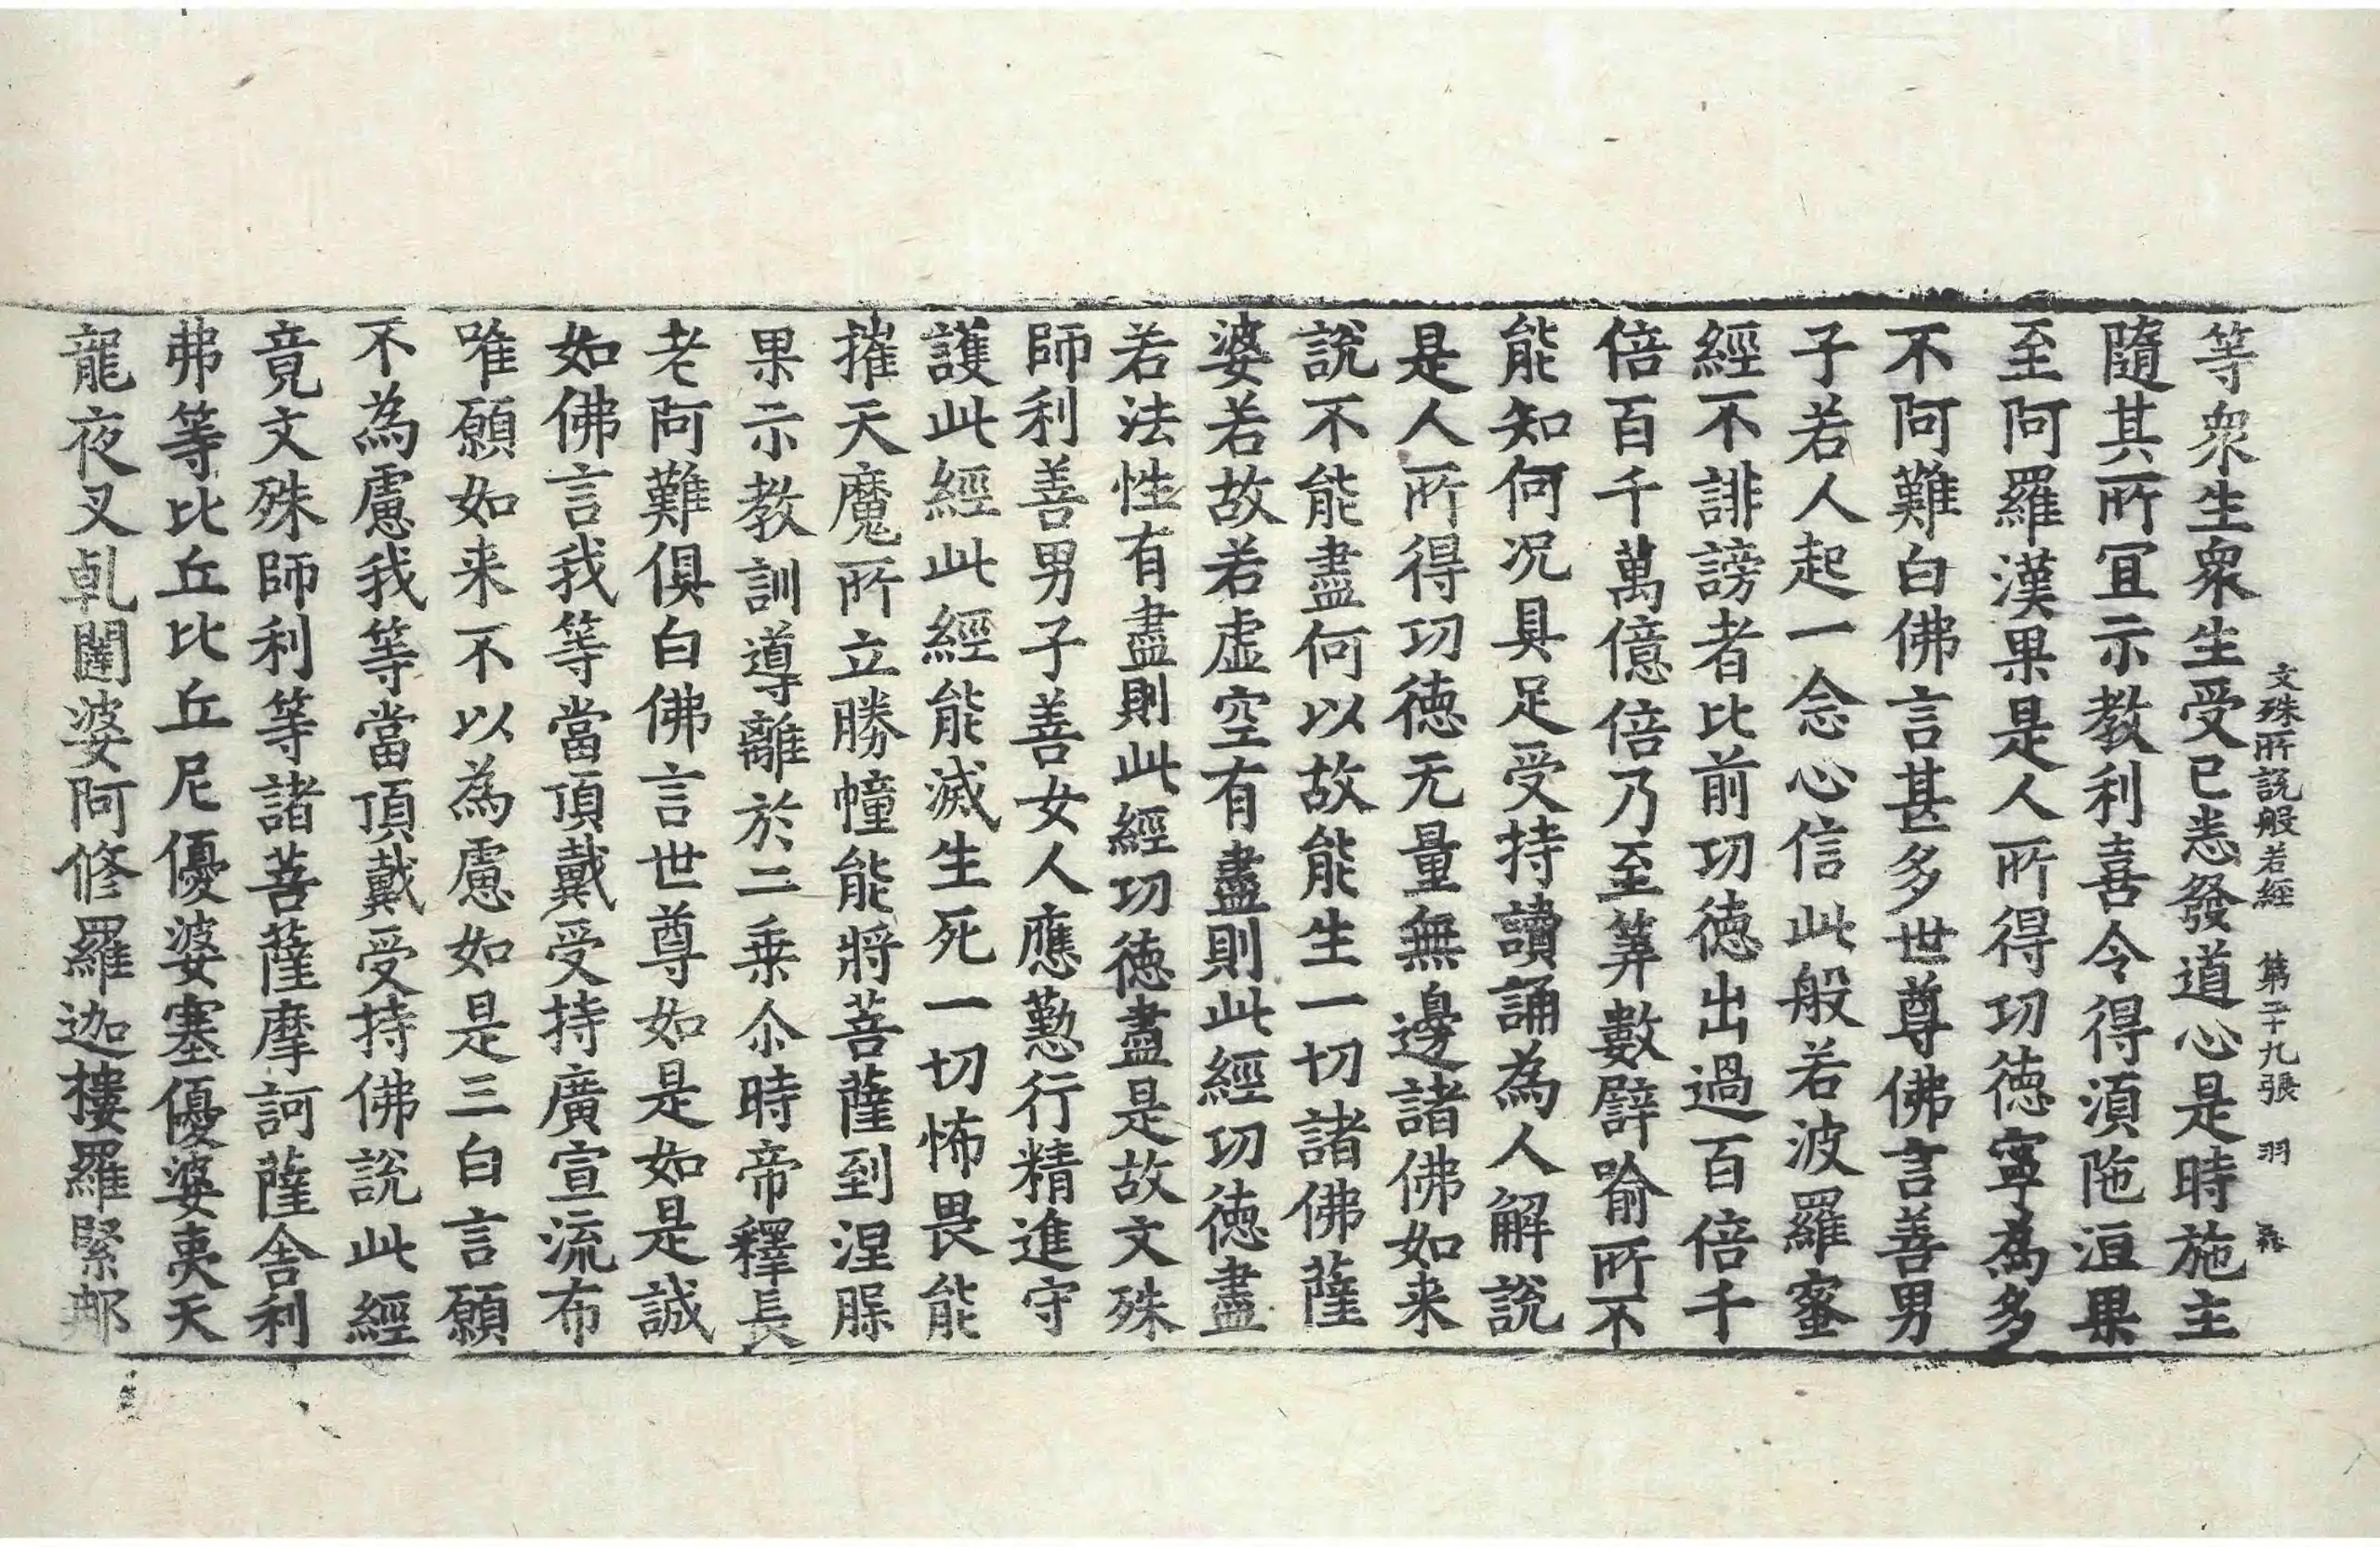 文殊所說般若經 第二十九張 羽
等衆生衆生受已悉發道心是時施主
隨其所宜示教利喜令得湏陁洹果
至阿羅漢果是人所得功徳寧為多
不阿難白佛言甚多世尊佛言善男
子若人起一念心信此般若波羅蜜
經不誹謗者比前功徳出過百倍千
倍百千萬億倍乃至筭數譬喻所不
能知何况具足受持讀誦為人解說
是人所得功徳无量無邊諸佛如来
說不能盡何以故能生一切諸佛薩
婆若故若虛空有盡則此經功徳盡
若法性有盡則此經功徳盡是故文殊
師利善男子善女人應懃行精進守
護此經此經能滅生死一切怖畏能
摧天魔所立勝幢能將菩薩到涅槃
果示教訓導離於二乗尒時帝釋長
老阿難俱白佛言世尊如是如是誠
如佛言我等當頂戴受持廣宣流布
唯願如来不以為慮如是三白言願
不為慮我等當頂戴受持佛說此經
竟文殊師利等諸菩薩摩訶薩舍利
弗等比丘比丘尼優婆塞優婆夷天
龍夜叉乹闥婆阿修羅迦樓羅緊那